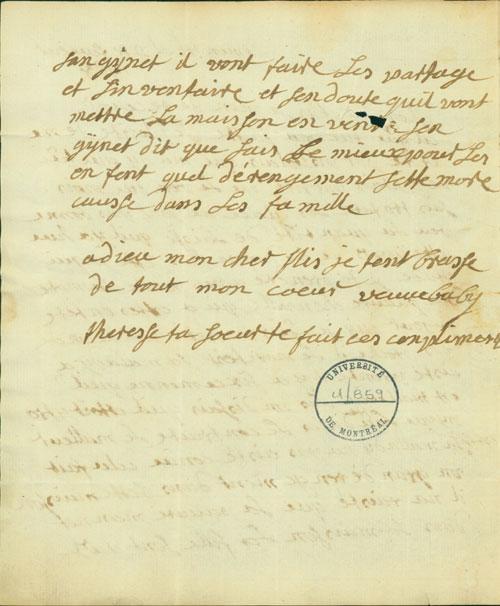 sangÿnet il vont faire Les partage
et Linventaire et sendoute quil vont
mettre La maison en vente sen
gÿnet dit que sais Le mieux pour Les
enfent quel derengement sette more
causse dans Les famille
adieu mon cher fils je tent brasse
de tout mon coeur veuve baby
theresse ta soeur te fait ces compliments
UNIVERSITÉ
U/859
DE MONTRÉAL